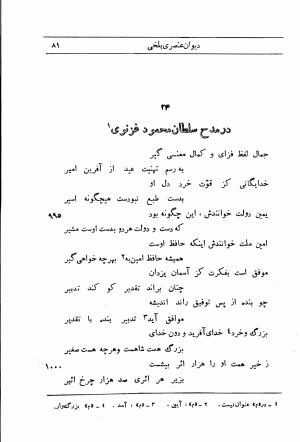 دیوان عنصری بلخی ۸۱
۲۴
در مدح سلطان محمود غزنوی۱
جمال لفظ فزای و کمال معنی گیر
به رسم تهنیت عید از آفرین امیر
خدایگانی کز قوّت خرد دل او
بدست طبع نبودست هیچگونه اسیر
یمین دولت خوانندش ، این چگونه بود ۹۹۵
که رست و دولت هر دو بدست اوست مشیر
امین ملت خوانندش اینکه حافظ اوست
همیشه حافظ امین به۲ بهرچه خواهی گیر
موفق است بفکرت کز آسمان یزدان
چنان براند تقدیر کو کند تدبیر
چو بنده از پس توفیق راند اندیشه
موافق آید۳ تدبیر بنده با تقدیر
بزرگ و خرد۴ خدای آفرید و دون خدای
بزرگ همت شاهست وهرچه هست صغیر
ز خیر همت او را هزار اثر بیشست ۱۰۰۰
بزیر هر اثری صد هزار چرخ اثیر
۱ ـ در«م» عنوان نیست . ۲ ـ «م» ، آیین . ۳ ـ «م» ، آمد . ۴ ـ «م» بزرگ وار.